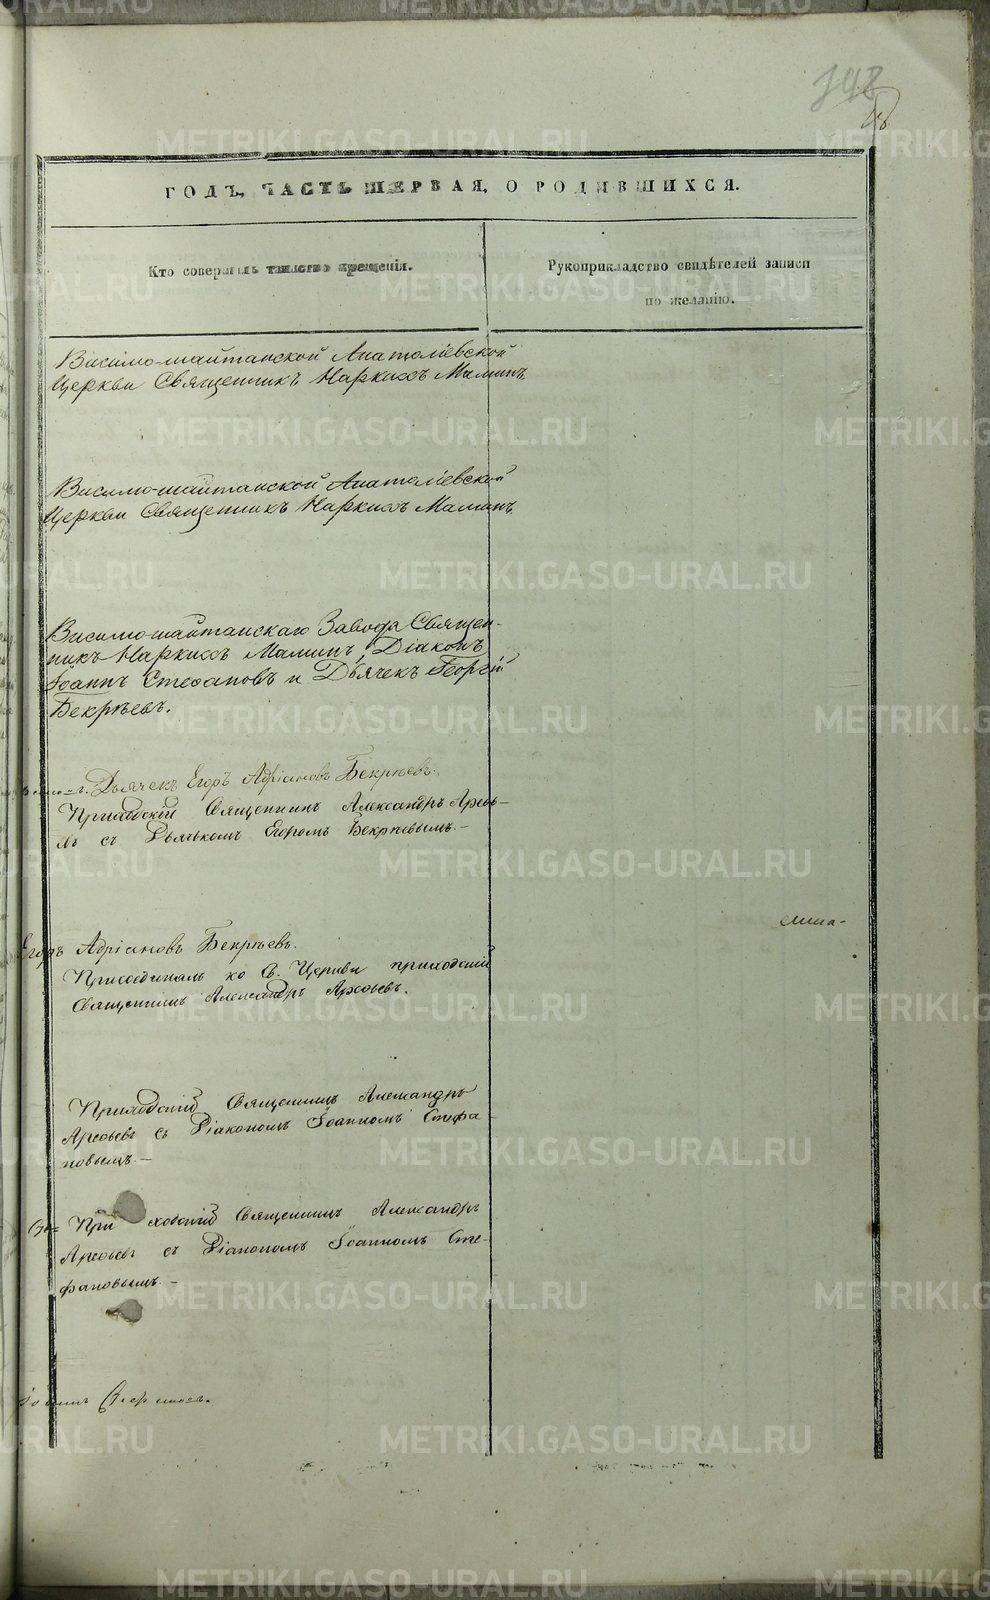 METRIKI.GASO-URAL.RU
148
ГОДЪ, ЧАСТЬ ПЕРВАЯ, О РОДИВШИХСЯ.
Кто совершалъ таинство крещенія.
Рукоприкладство свидѣтелей записи
по желанію.
Висимо-шайтанской Анатоліевской
Церкви Священникъ Наркисъ Маминъ.
Висимо-шайтанской Анатоліевской
Церкви Священникъ Наркисъ Маминъ.
Висимо-шайтанскаго Завода Священ-
никъ Наркисъ Маминъ, Діаконъ
Іоаннъ Стефановъ и Дьячекъ Георгій
Бекрѣевъ.
Дьячекъ Егоръ Адріановъ Бекрѣевъ.
Приходскій Священникъ Александръ Арефь-
въ съ Дьячкомъ Егоромъ Бекрѣевымъ.-
Егоръ Адріановъ Бекрѣевъ.
Присоединялъ ко Св. Церкви приходскій
Священникъ Александръ Арефьевъ.
Приходскій Священникъ Александръ
Арефьевъ съ Діакономъ Іоанномъ Стефа-
новымъ.-
Приходскій Священникъ Александръ
Арефьевъ съ Діакономъ Іоанномъ Сте-
фановымъ-